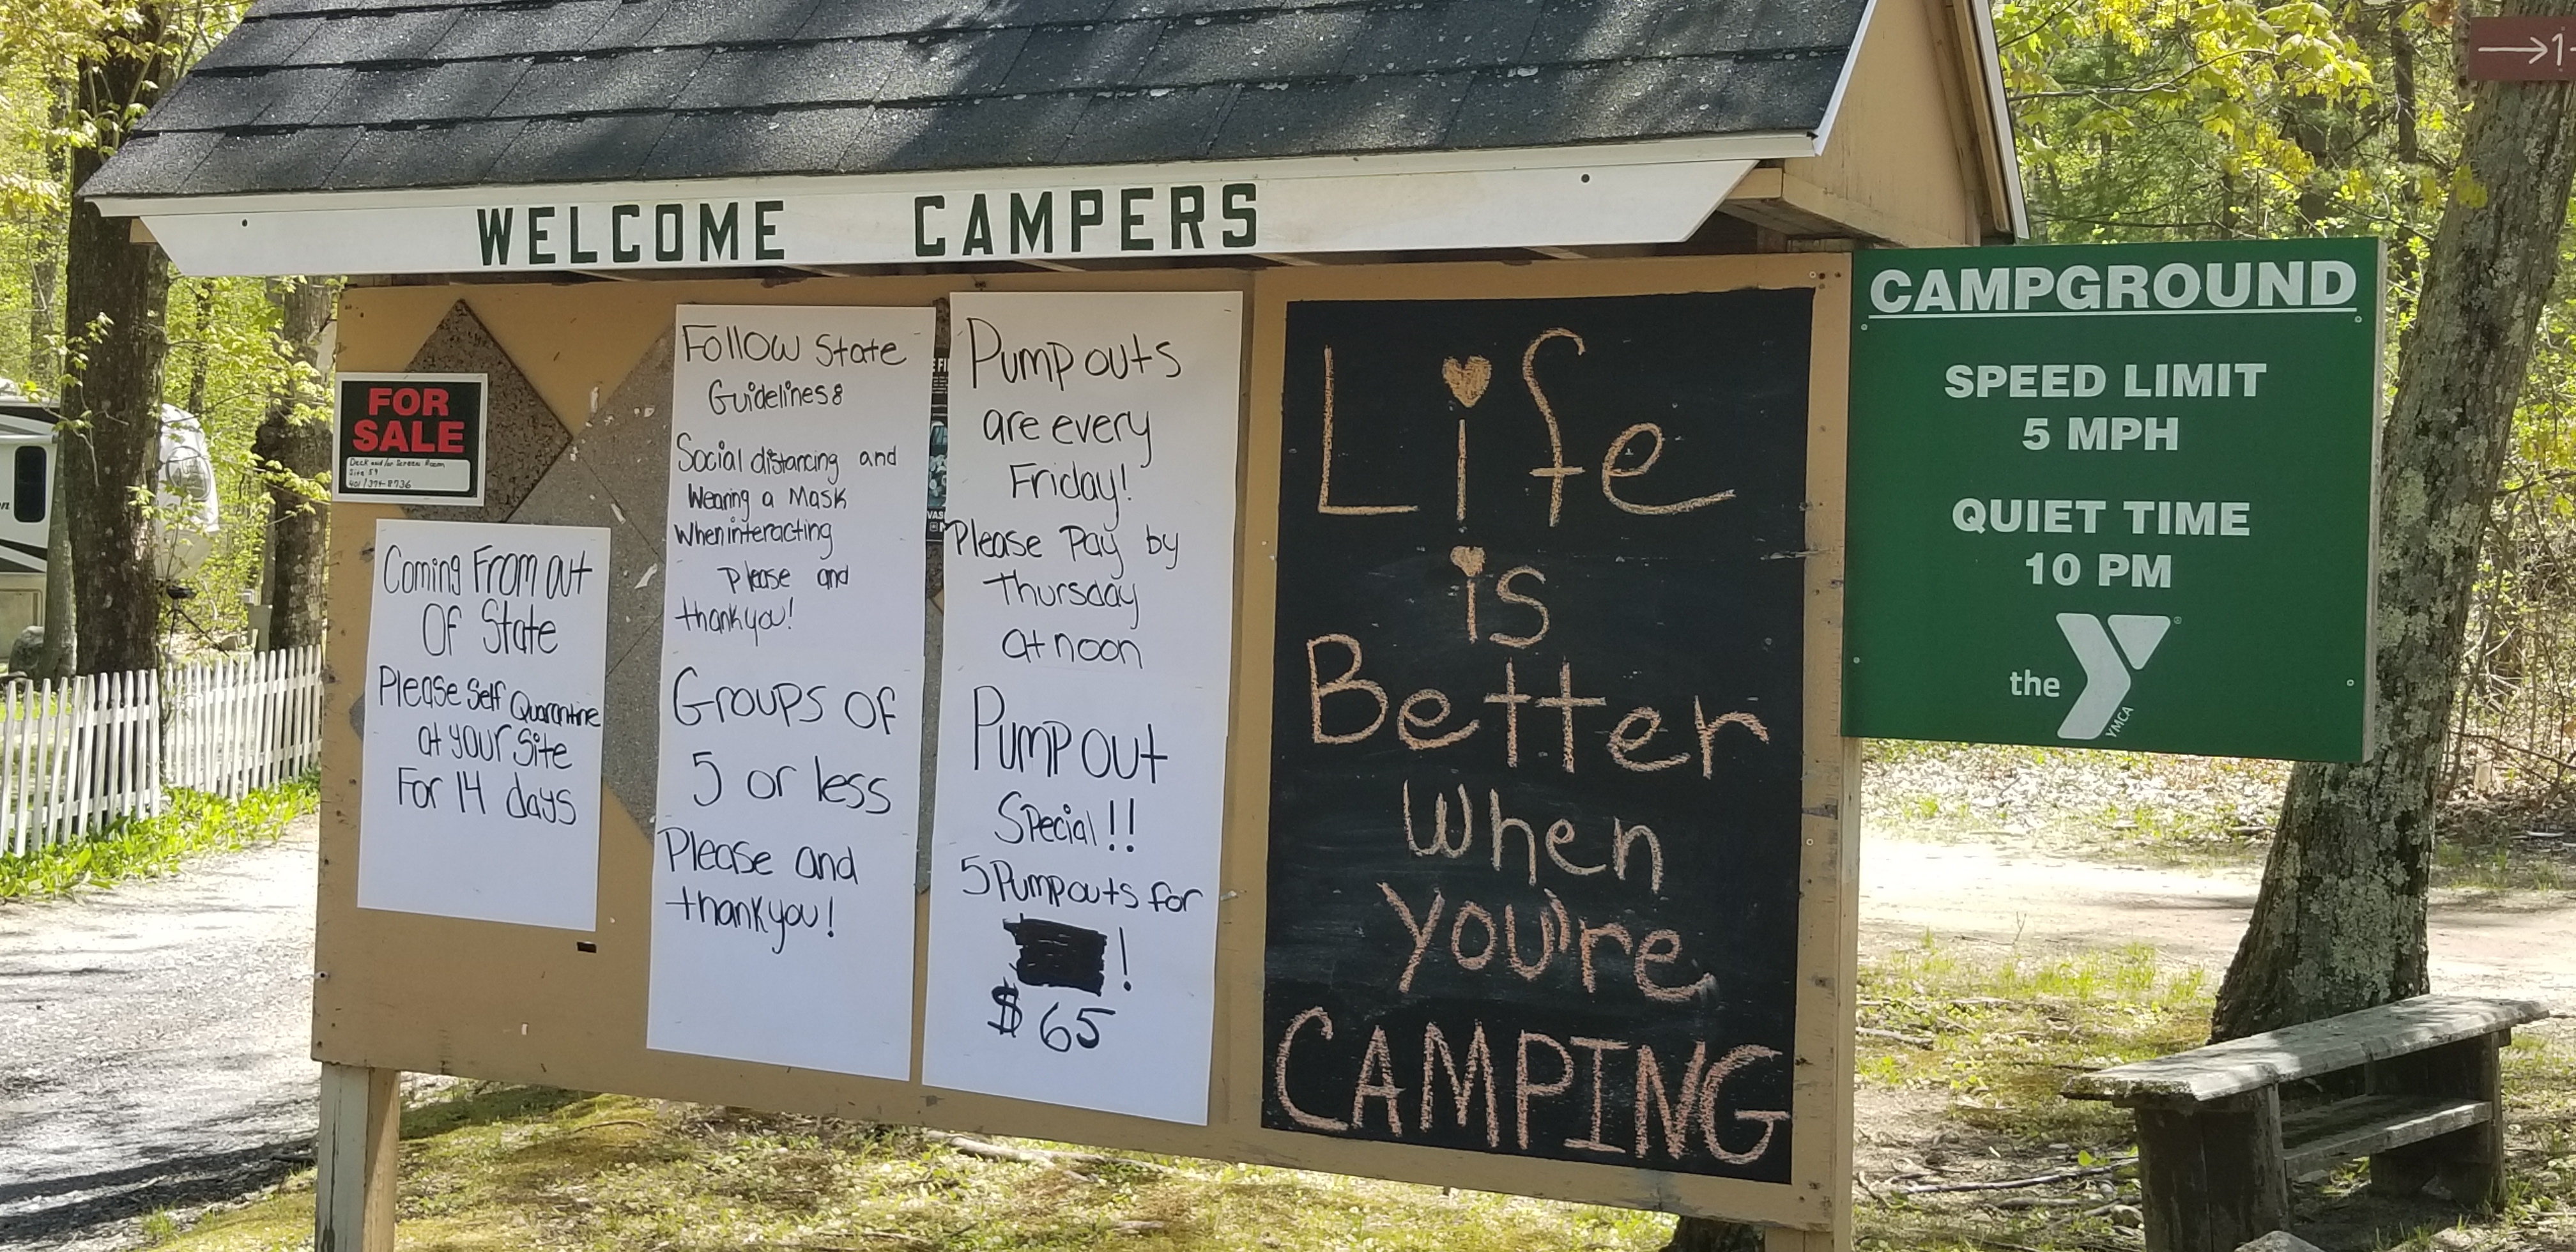 WELCOME CAMPERS
FOR
SALE
Deck and/or Screen Room
Site 59
Coming From out
Of State
Please Self Quarantine
at your Site
For 14 days
Follow State
Guidelines:
Social distancing and
Wearing a Mask
When interacting
Please and
thank you!
Groups of
5 or less
Please and
thank you!
Pump outs
are every
Friday!
Please Pay by
Thursday
at noon
Pump out
Special!!
5 Pump outs for
!
$65
Life
is
Better
When
you're
CAMPING
CAMPGROUND
SPEED LIMIT
5 MPH
QUIET TIME
10 PM
the Y
YMCA
→1